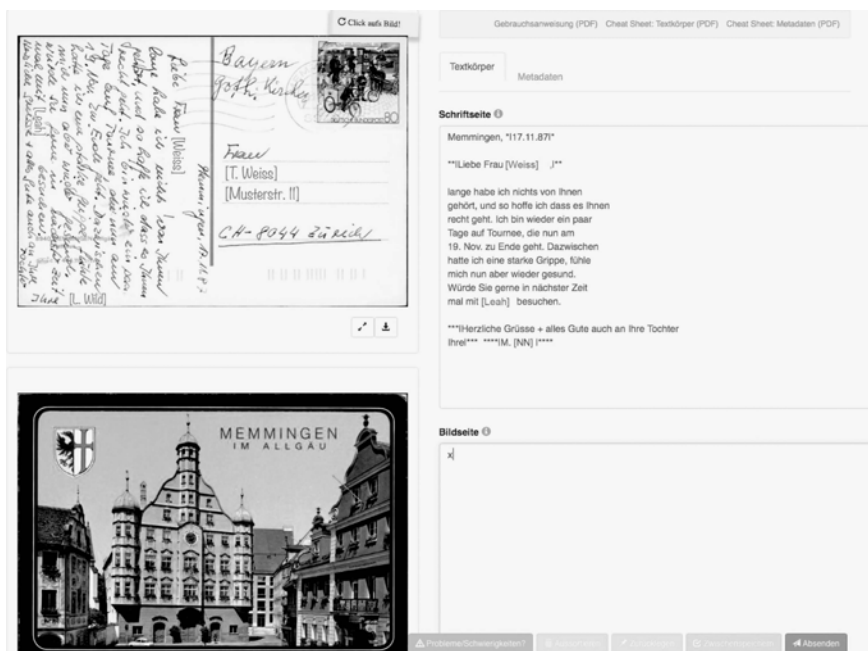 Click aufs Bild!
Gebrauchsanweisung (PDF) Cheat Sheet: Textkörper (PDF) Cheat Sheet: Metadaten (PDF)
Liebe Frau [Weiss]
lange habe ich nichts von Ihnen
gehört, und so hoffe ich dass es Ihnen
recht geht. Ich bin wieder ein paar
Tage auf Tournee, die nun am
19. Nov. zu Ende geht. Dazwischen
hatte ich eine starke Grippe, fühle
mich nun aber wieder gesund.
Würde Sie gerne in nächster Zeit
mal mit [Leah] besuchen.
Herzliche Grüsse + alles Gute auch an Ihre
Tochter
Ihre [L. Wild]
Memmingen, 17.11.87
Bayern
goth. Kirche
DEUTSCHE BUNDESPOST 80
Frau
[T. Weiss]
[Musterstr. 11]
CH-8044 Zürich
MEMMINGEN
IM ALLGÄU
Textkörper
Metadaten
Schriftseite
Memmingen, "I17.11.87I"
**ILiebe Frau [Weiss] ,I**
lange habe ich nichts von Ihnen
gehört, und so hoffe ich dass es Ihnen
recht geht. Ich bin wieder ein paar
Tage auf Tournee, die nun am
19. Nov. zu Ende geht. Dazwischen
hatte ich eine starke Grippe, fühle
mich nun aber wieder gesund.
Würde Sie gerne in nächster Zeit
mal mit [Leah] besuchen.
***IHerzliche Grüsse + alles Gute auch an Ihre Tochter
IhreI*** ****IM. [NN] I****
Bildseite
x
Probleme/Schwierigkeiten?
Zwischenspeichern
Absenden